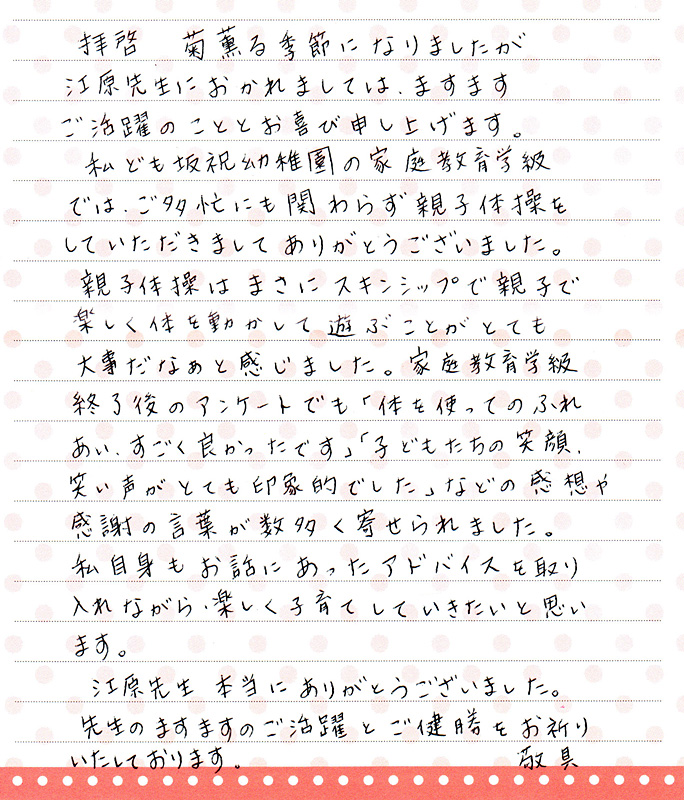 拝啓　菊薫る季節になりましたが
江原先生におかれましては、ますます
ご活躍のこととお喜び申し上げます。
私ども坂祝幼稚園の家庭教育学級
では、ご多忙にも関わらず親子体操を
していただきましてありがとうございました。
親子体操はまさにスキンシップで親子で
楽しく体を動かして遊ぶことがとても
大事だなぁと感じました。家庭教育学級
終了後のアンケートでも「体を使ってのふれ
あい、すごく良かったです」「子どもたちの笑顔、
笑い声がとても印象的でした」などの感想や
感謝の言葉が数多く寄せられました。
私自身もお話にあったアドバイスを取り
入れながら、楽しく子育てしていきたいと思い
ます。
江原先生 本当にありがとうございました。
先生のますますのご活躍とご健勝をお祈り
いたしております。　敬具